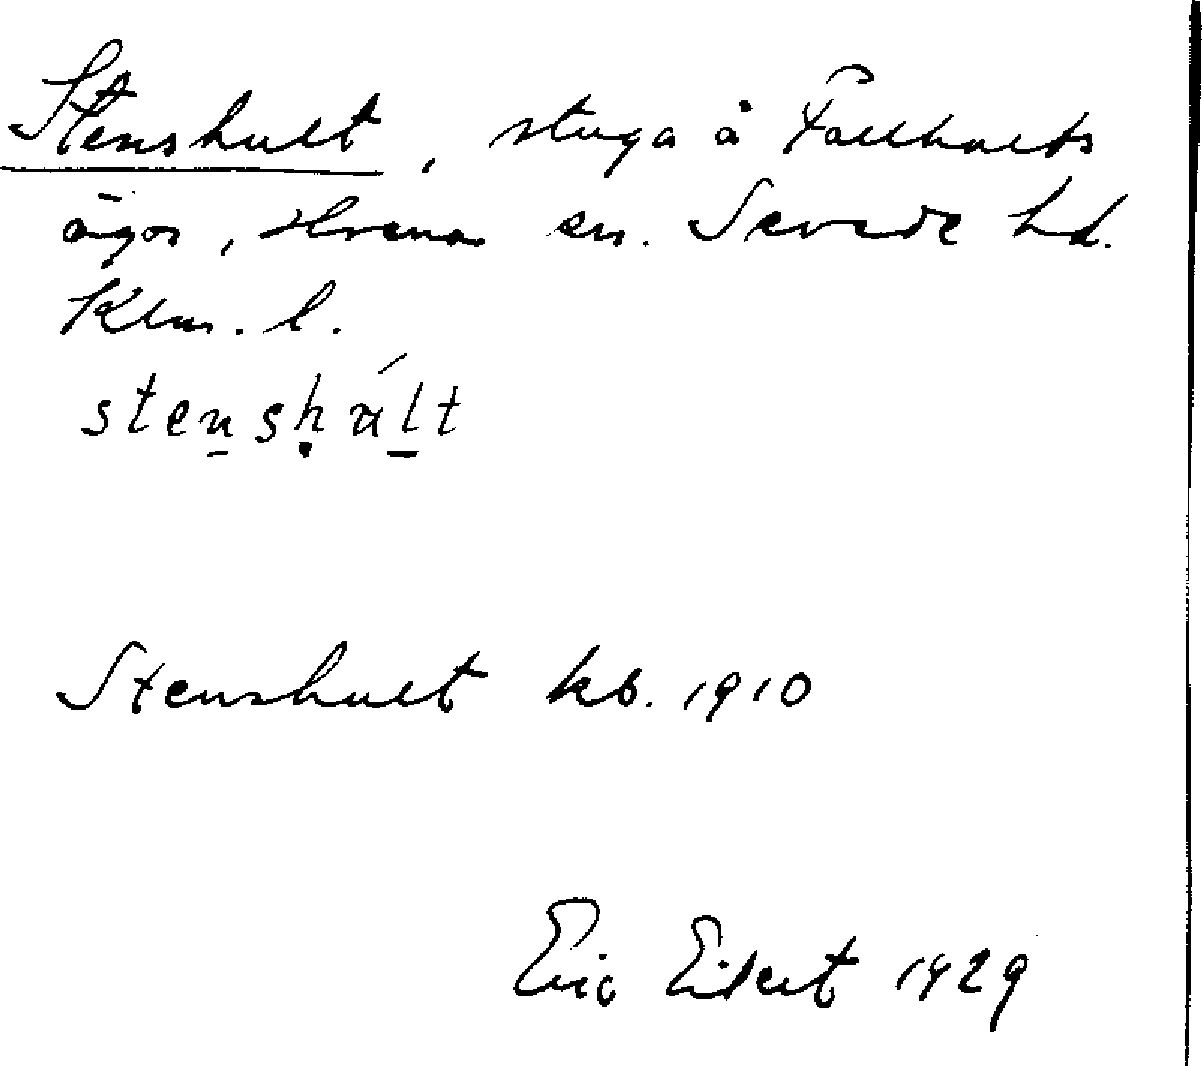 Stenshult, stuga å Fallhults
ägor, Hvena sn. Sevede hd.
Klm. l.
stenshult
Stenshult kb. 1910
Eric Eilert 1929